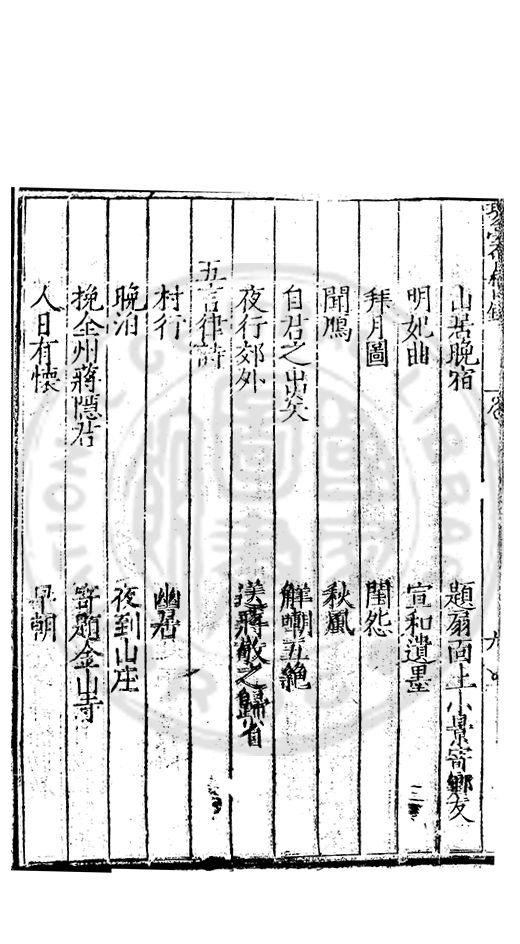 山居晚宿　題扇面上小景寄鄉友
明妃曲　宣和遺墨
拜月圖　閨怨
聞鴈　秋風
自君之出矣　解嘲五絶
夜行郊外　送蔣敬之歸省
五言律詩
村行　幽居
晚泊　夜到山庄
挽全州蔣隱君　寄題金山寺
人日有懷　早朝